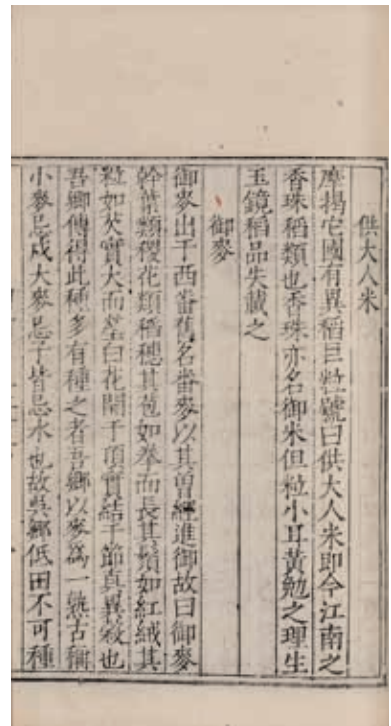 供大人米
摩揭它國有異稻巨粒號曰供大人米即今江南之
香珠稻類也香珠亦名御米但粒小耳黃勉之理生
玉鏡稻品失載之
御麥
御麥出于西番舊名番麥以其曾經進御故曰御麥
幹葉類稷花類稻穗其苞如拳而長其鬚如紅絨其
粒如芡實大而瑩白花開于頂實結于節真異穀也
吾鄉傳得此種多有種之者吾鄉以麥為一熟古稱
小麥忌戌大麥忌子皆忌水也故吳鄉低田不可種